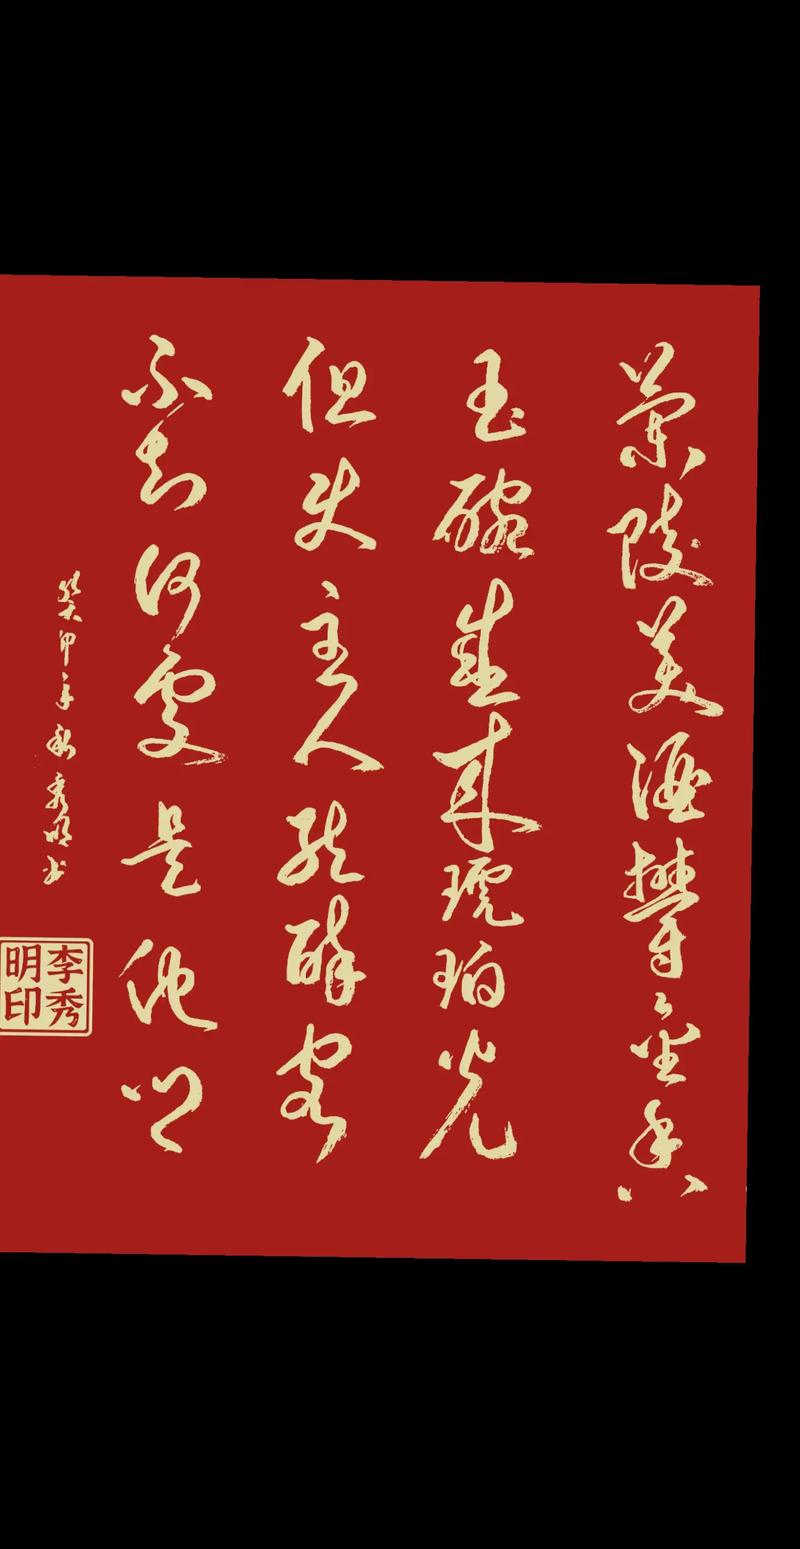 蘭陵美酒鬱金香
玉碗盛来琥珀光
但使主人能醉客
不知何處是他鄉
癸卯年秋秀明书
李秀明印